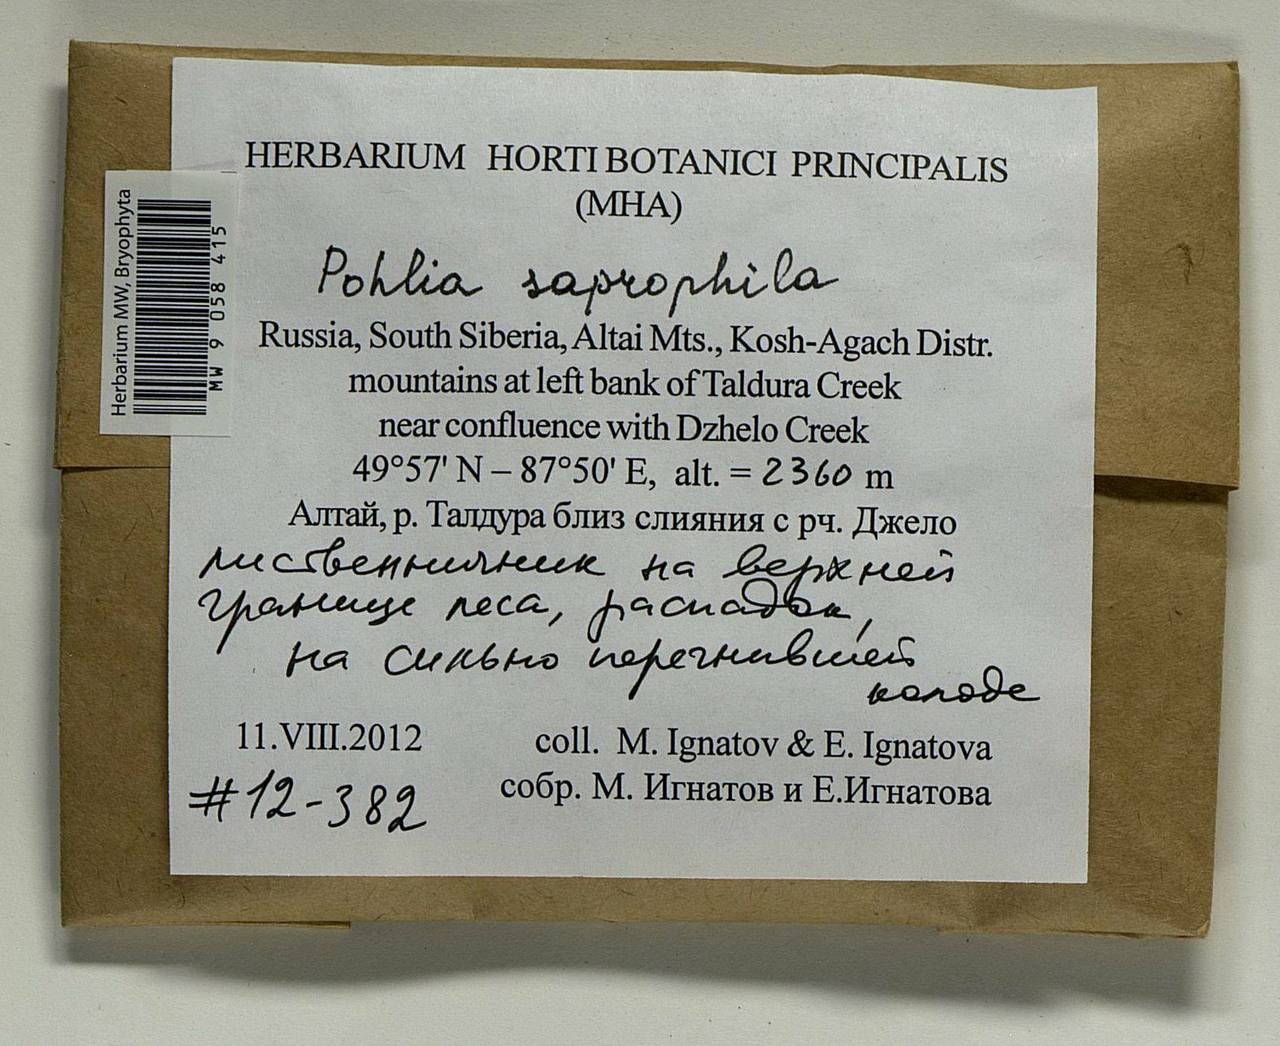 HERBARIUM HORTI BOTANICI PRINCIPALIS
(MHA)
Pohlia saprophila
Russia, South Siberia, Altai Mts., Kosh-Agach Distr.
mountains at left bank of Taldura Creek
near confluence with Dzhelo Creek
49°57' N – 87°50' E, alt. = 2360 m
Алтай, р. Талдура близ слияния с рч. Джело
лиственничник на верхней
границе леса, распадок,
на сильно перегнившей
колоде
11.VIII.2012
coll. M. Ignatov & E. Ignatova
собр. М. Игнатов и Е.Игнатова
#12-382
Herbarium MW, Bryophyta
MW 9 058 415